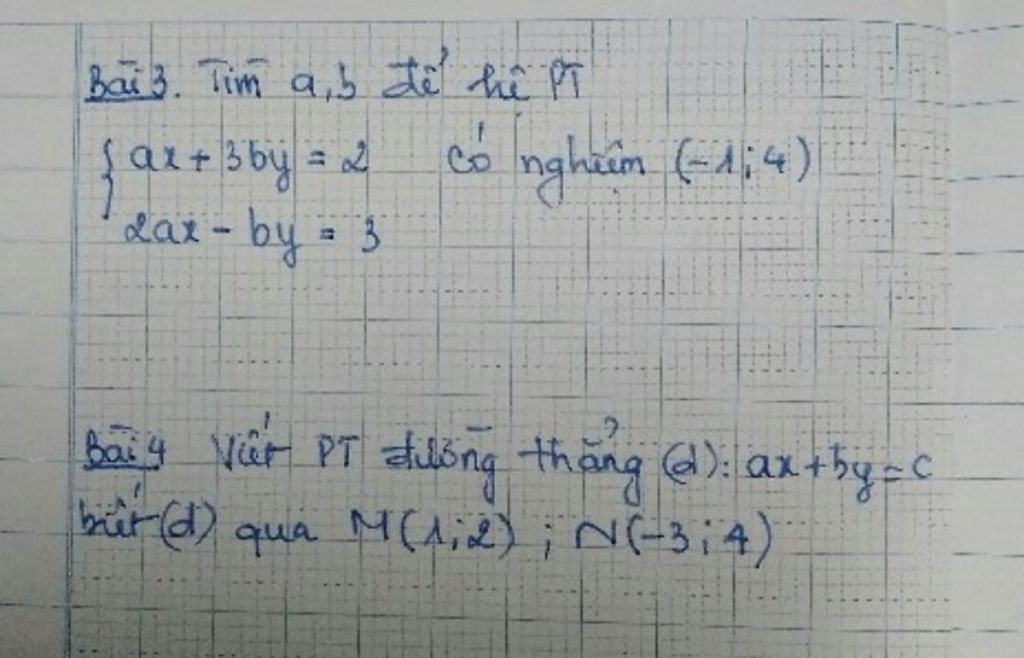 Bài 3. Tìm a, b để hệ PT
{ ax + 3by = 2 có nghiệm (-1; 4)
2ax - by = 3
Bài 4 Viết PT đường thẳng (d): ax + by = c
biết (d) qua M(1; 2) ; N(-3; 4)